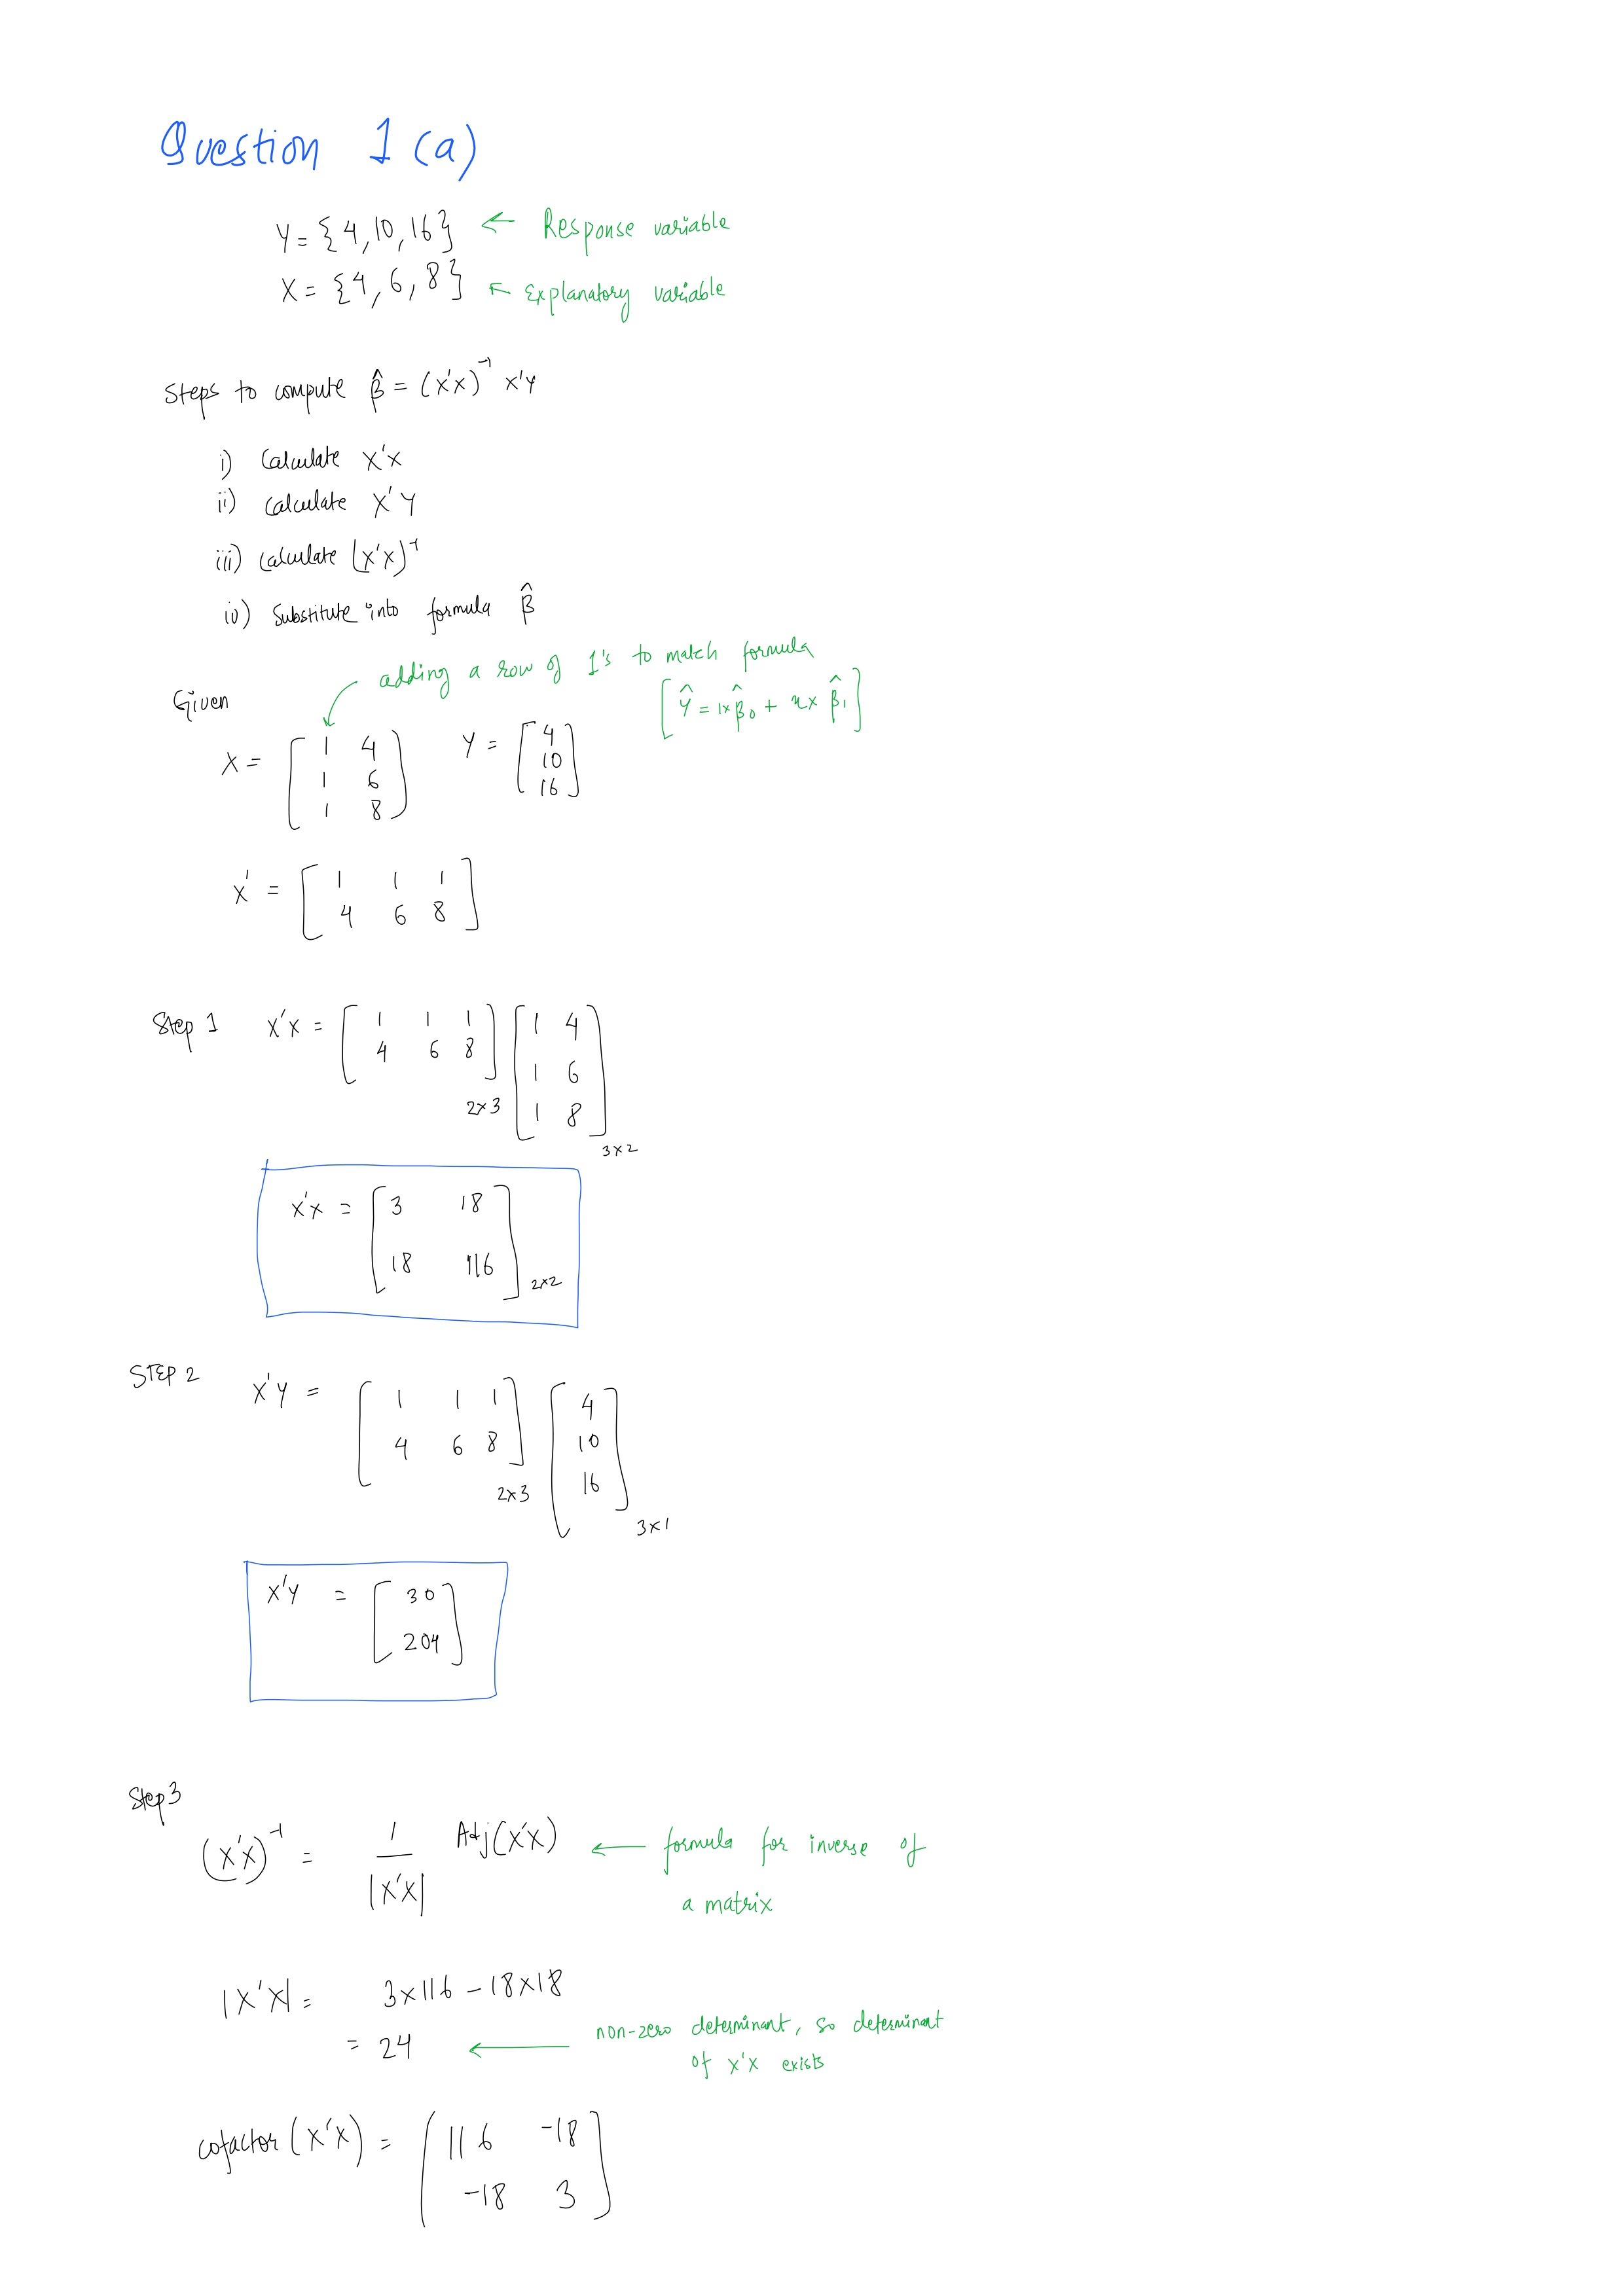 Question 1 (a)
Y = {4, 10, 16} ← Response variable
X = {4, 6, 8} ← Explanatory variable
Steps to compute β̂ = (X'X)⁻¹ X'Y
i) Calculate X'X
ii) calculate X'Y
iii) Calculate (X'X)⁻¹
iv) Substitute into formula β̂
adding a row of 1's to match formula
[Ŷ = 1×β̂₀ + x× β̂₁]
Given
X = [1 4
1 6
1 8]
Y = [4
10
16]
X' = [1 1 1
4 6 8]
Step 1 X'X = [1 1 1
4 6 8] 2×3
[1 4
1 6
1 8] 3×2
X'X = [3 18
18 116] 2×2
STEP 2 X'Y = [1 1 1
4 6 8] 2×3
[4
10
16] 3×1
X'Y = [30
204]
Step 3
(X'X)⁻¹ = 1/|X'X| Adj(X'X) ← formula for inverse of
a matrix
|X'X| = 3×116 – 18×18
= 24 ← non-zero determinant, so determinant
of X'X exists
cofactor (X'X) = [116 -18
-18 3]